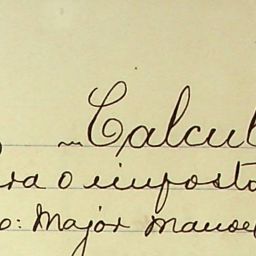 Calcul
ra o imposto
o: Major Manoel